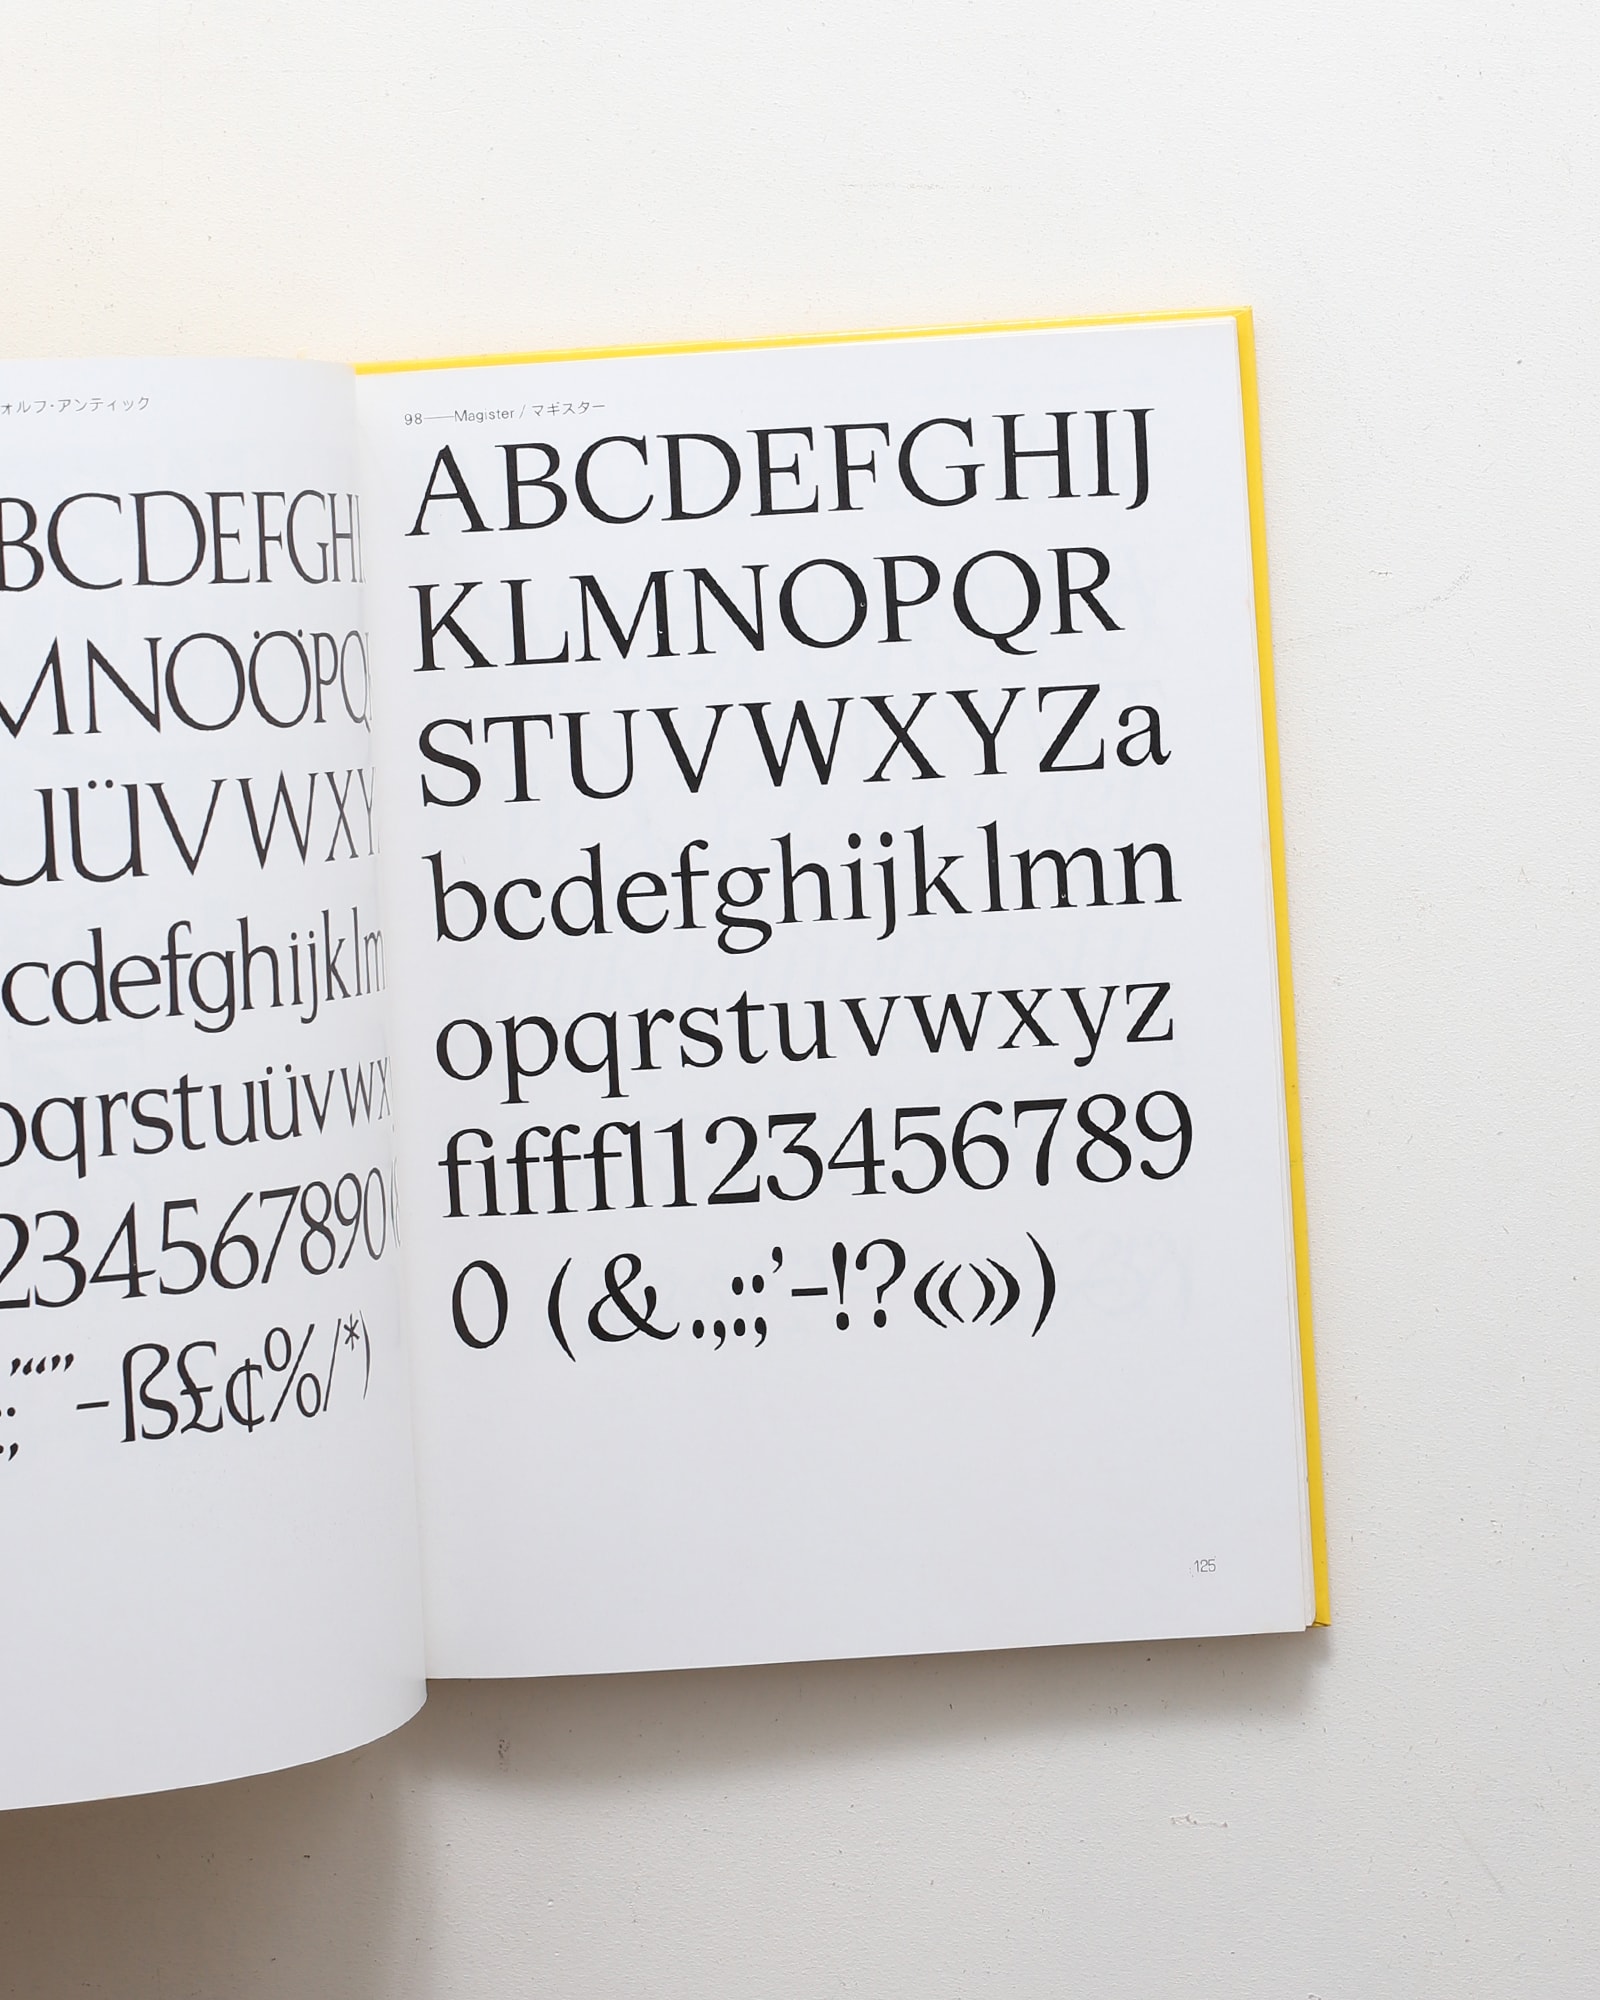 ォルフ・アンティック
BCDEFGH
MNOÖPQ
UÜVWXY
cdefghijklm
pqrstuüvwx
234567890(
:;’“”-ß£¢%/*)
98——Magister / マギスター
ABCDEFGHIJ
KLMNOPQR
STUVWXYZa
bcdefghijklmn
opqrstuvwxyz
fifffl123456789
0 (&.,:;’-!?«‹›»)
125